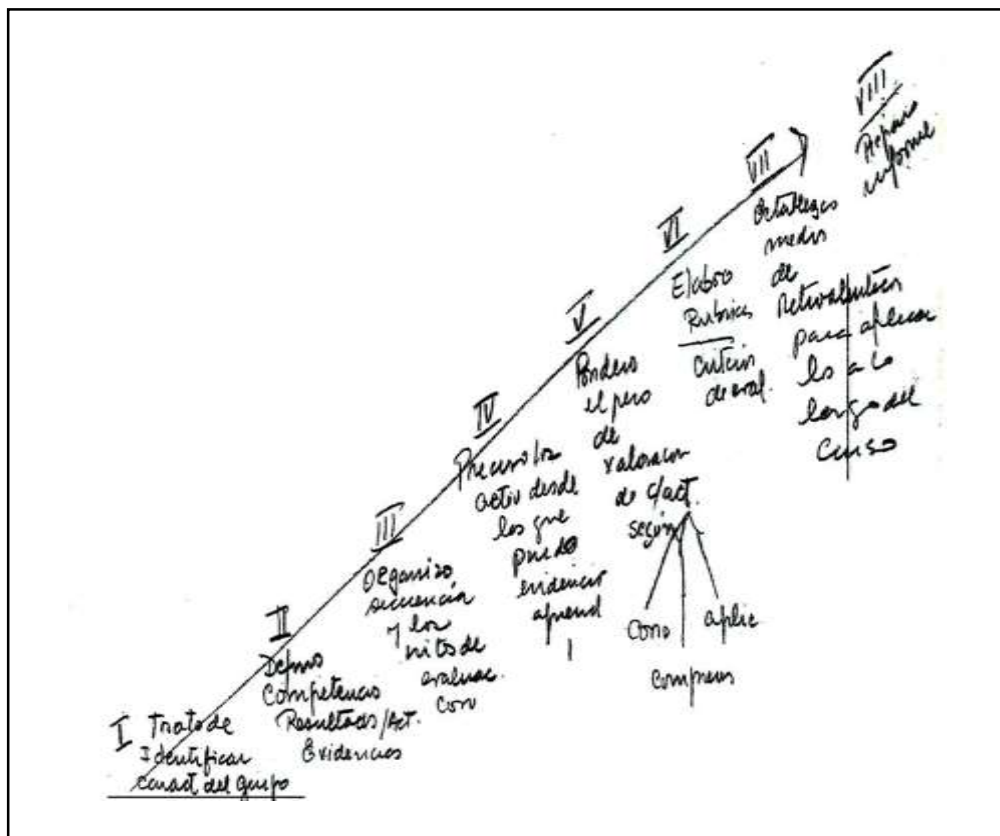 I Trato de
Identificar
caract del grupo
II
Defino
Competencias
Resultados/Act.
Evidencias
III
Organizo
secuencia
y los
hitos de
evaluac.
IV
Preciso los
activ desde
los que
puedo
evidenciar
aprend
V
Pondero
el peso
de
valoración
de c/act.
según
Cono
aplic
Compren
VI
Elaboro
Rubricas
Criterios
de eval.
VII
Establezco
medios
de
para aplicar
los a lo
largo del
Curso
VIII
informe